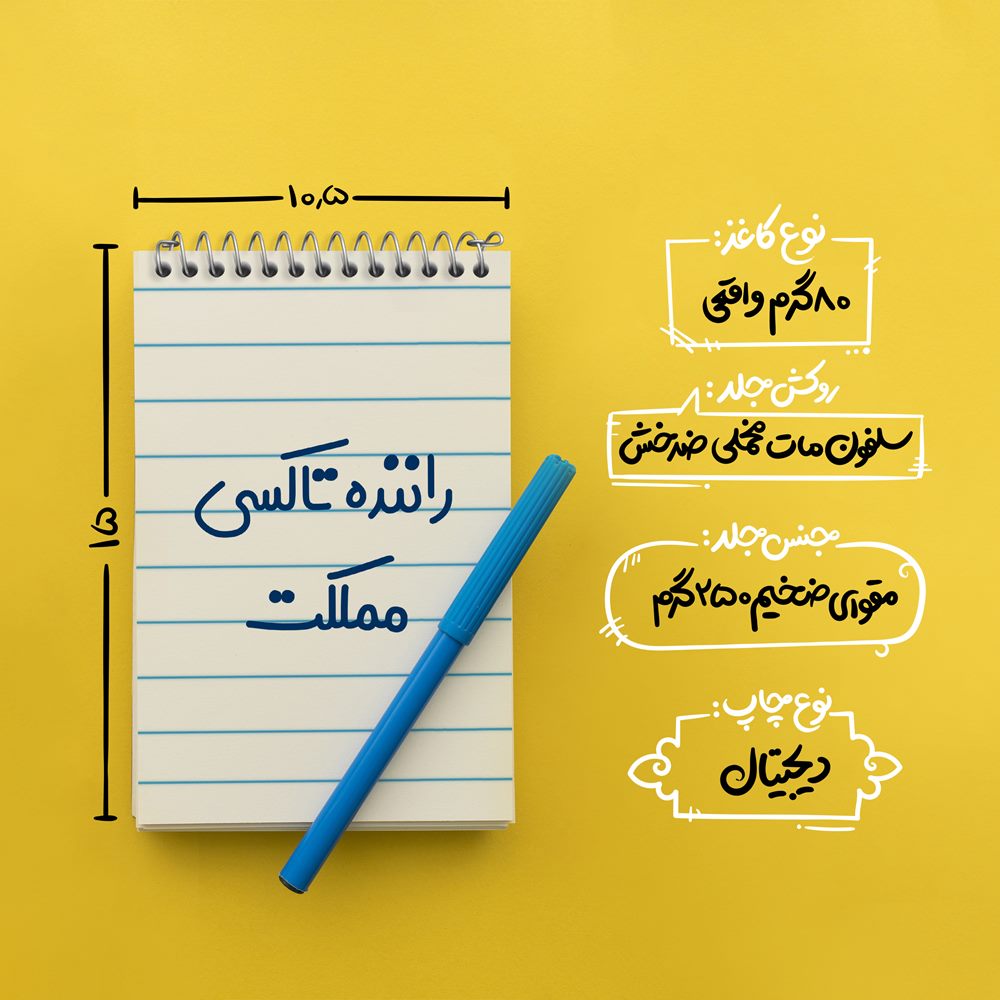 ۱۰٫۵
۱۵
راننده تاکسی
مملکت
نوع کاغذ:
۸۰گرم واقعی
روکش جلد:
سلفون مات مخملی ضدخش
جنس جلد:
مقوای ضخیم ۲۵۰گرم
نوع چاپ:
دیجیتال